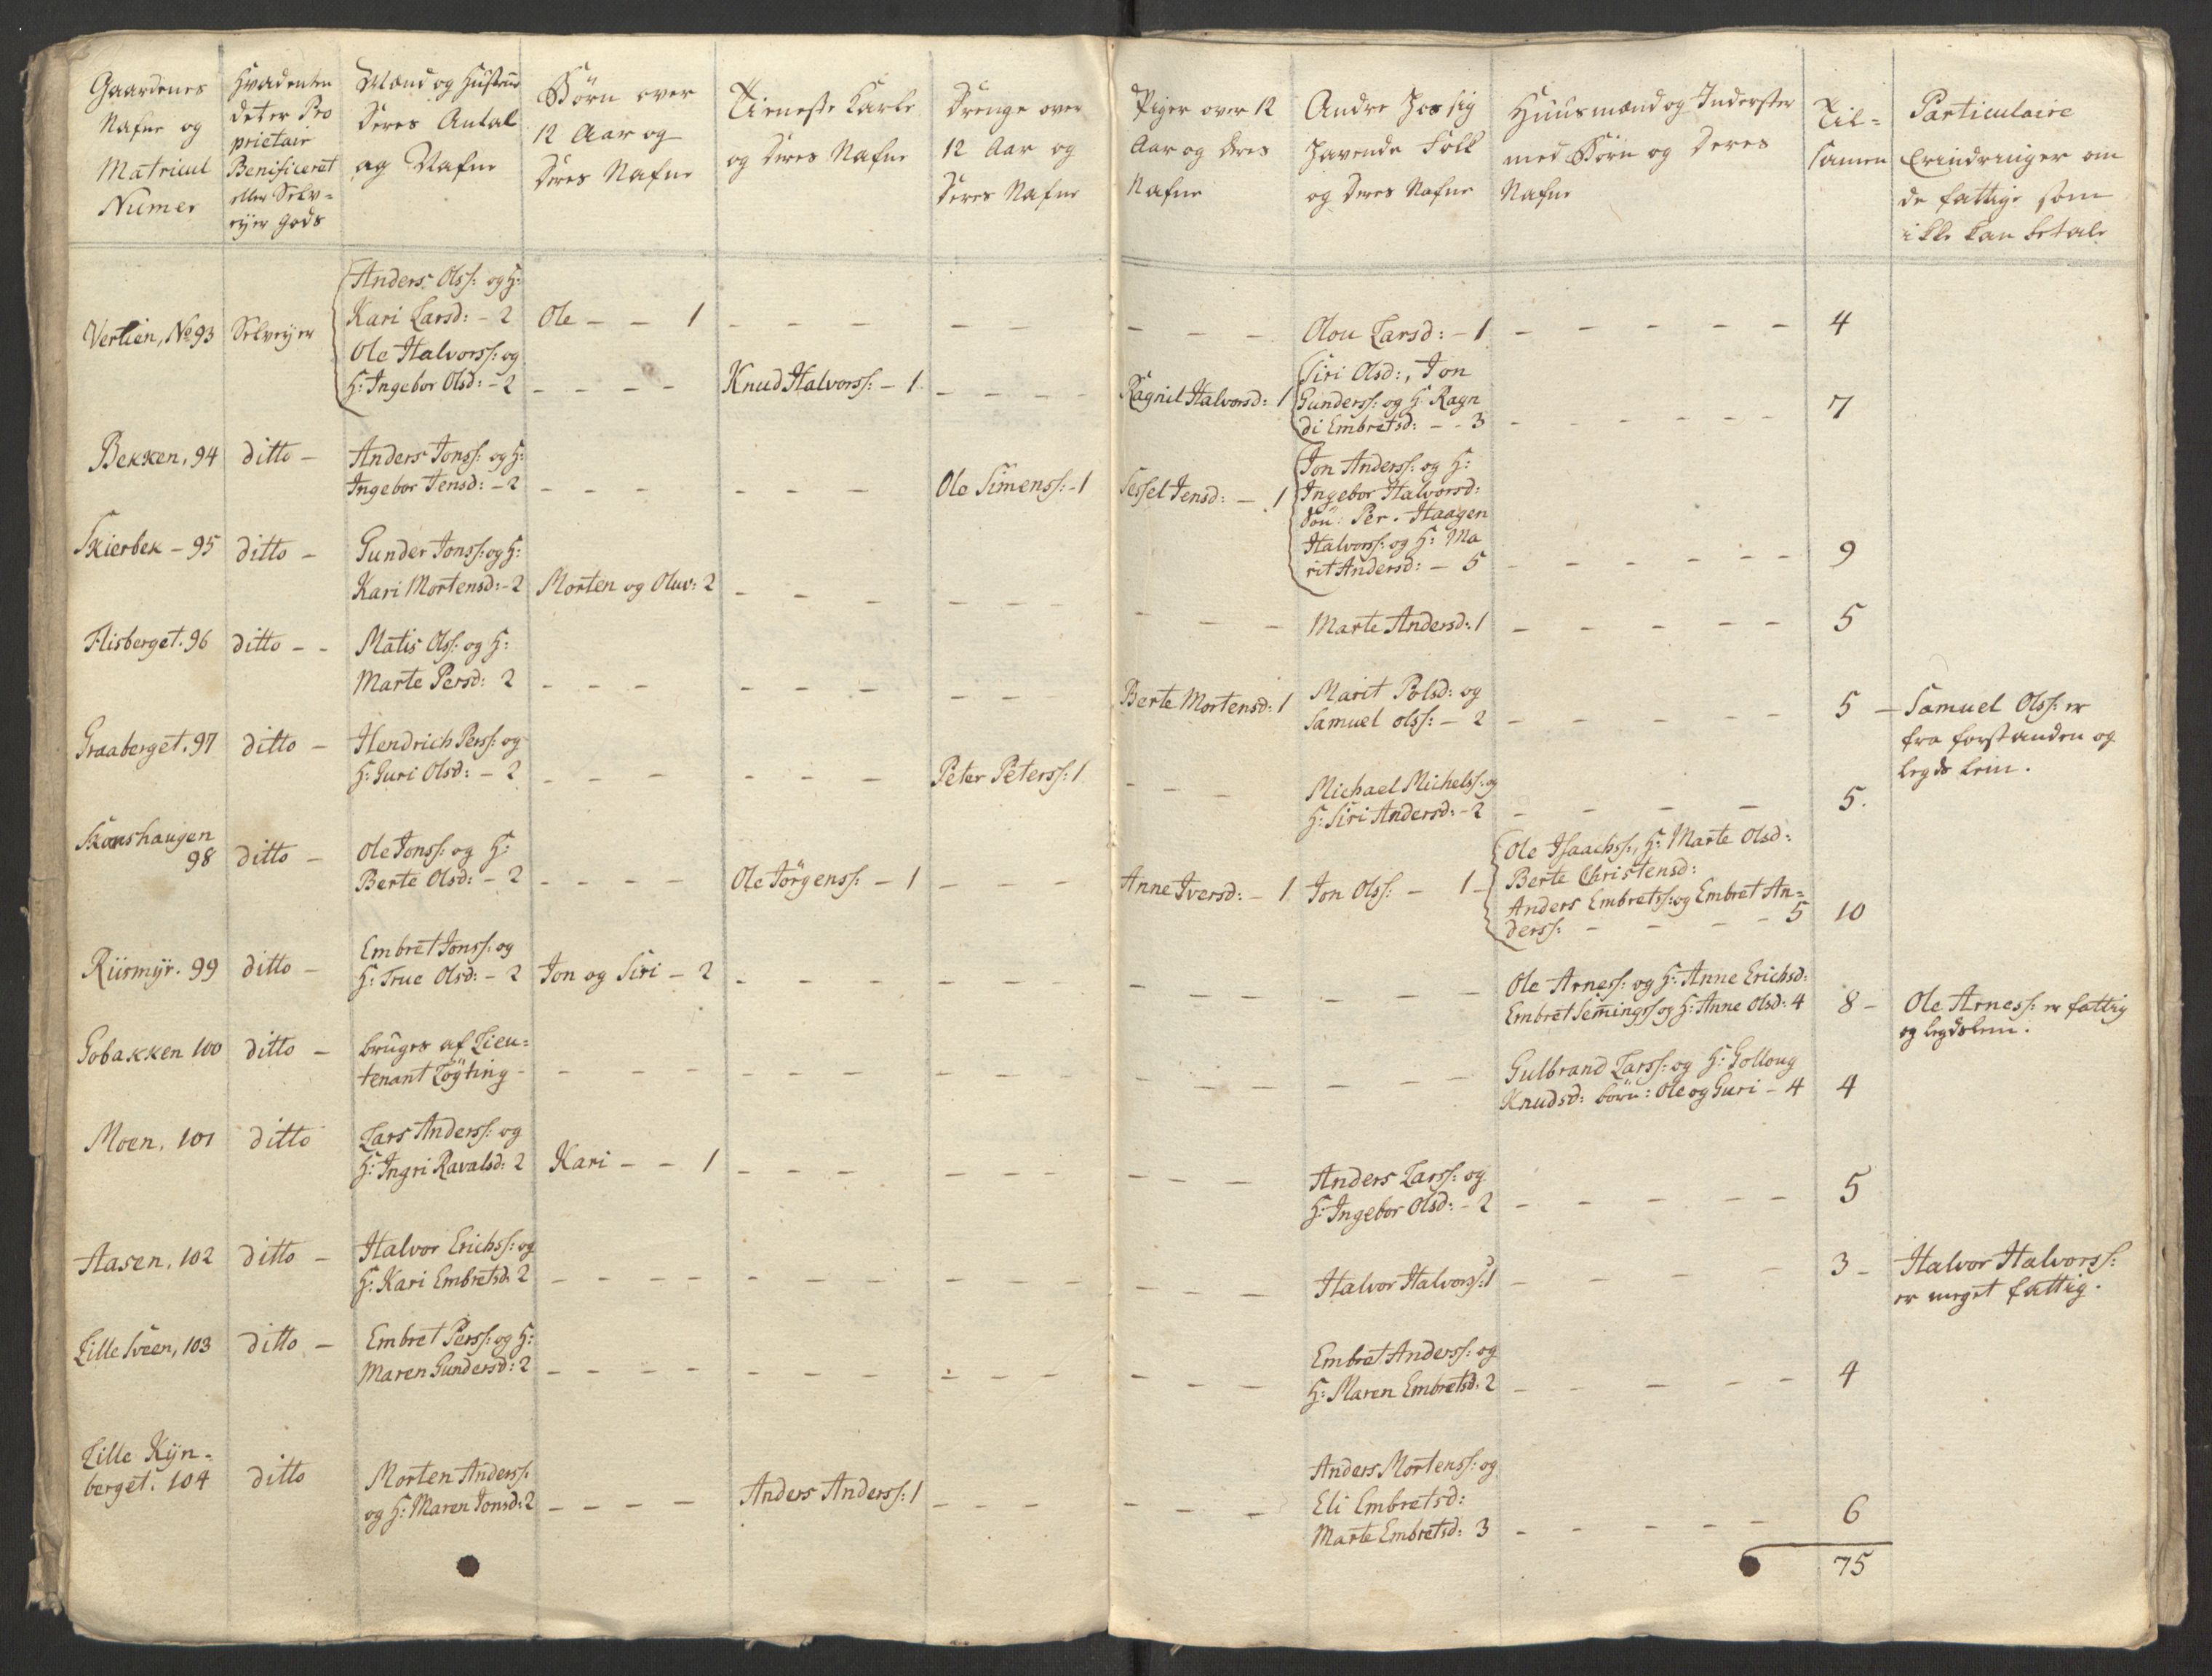 Gaardenes
Nafne og
Matricul
Numer
Hvad enten
det er Pro
prietair
Benificeret
eller Selv=
eyer gods
Mænd og Hustruer
Deres Antal
og Nafne
Börn over
12 Aar og
Deres Nafne
Tieneste Karle
og Deres Nafne
Drenge over
12 Aar og
Deres Nafne
Piger over 12
Aar og deres
Nafne
Andre hos sig
havende Folk
og Deres Nafne
Huusmænd og Inderster
med Börn og Deres
Nafne
Til=
samen
Particulaire
Erindringer om
de fattige som
ikke kan betale
Vertien, No 93 Selveyer
Anders Olss: og H:
Kari Larsd: - 2 Ole - - 1 - - - - - - - - Olou Larsd: - 1 - - - - - 4
Ole Halvorss: og
H: Ingebor Olsd: - 2 - - - - Knud Halvorss: - 1 - - - - Ragnil Halvorsd: 1
Siri Olsd:, Jon
Gunderss: og H: Ragn
di Embretsd: - - 3 - - - - - 7
Bekken, 94 ditto -
Anders Jonss: og H:
Ingebor Jensd: - 2 - - - - - - Ole Simenss: - 1 Sessel Jensd: - 1
Jon Anderss: og H:
Ingebor Halvorsd:
Sön: Per. Haagen
Halvorss: og H: Ma
rit Andersd: - 5 - - - - - 9
Skierbek - 95 ditto -
Gunder Jonss: og H:
Kari Mortensd: - 2 Morten og Oluv: 2 - - - - - - - - - Marte Andersd: 1 - - - - - 5
Flisberget. 96 ditto - -
Matis Olss: og H:
Marte Persd: 2 - - - - - - - - Berte Mortensd: 1
Marit Polsd: og
Samuel olss: - 2 - - - - - 5 -
Samuel Olss: er
fra forstanden og
legds lem.
Graaberget. 97 ditto -
Hendrich Perss: og
H: Guri Olsd: - 2 - - - - - - Peter Peterss: 1 - - -
Michael Michelss: og
H: Siri Andersd: - 2 - - - - 5.
Skonshaugen
98 ditto -
Ole Jonss: og H:
Berte Olsd: - 2 - - - - Ole Jörgenss: - 1 - - - Anne Iversd: - 1 Jon Olss: - 1 -
Ole Isaachss:, H: Marte Olsd:
Berte Christensd:
Anders Embretss: og Embret An=
derss: - - - - 5 10
Riismyr. 99 ditto -
Embret Jonss: og
H: True Olsd: - 2 Jon og Siri - 2 - - - - - - - - - - - -
Ole Arness: og H: Anne Erichsd:
Embret Semingss og H: Anne Olsd: 4 8 -
Ole Arness: er fattig
og legdslem.
Gobakken 100 ditto -
bruges af Lieu=
tenant Löyting - - - - - - - - - - - - - - - -
Gulbrand Larss: og H: Gollong
Knudsd: börn: Ole og Guri - 4 4
Moen, 101 ditto
Lars Anderss: og
H: Ingri Ravalsd: 2 Kari - - 1 - - - - - - - - -
Anders Larss: og
H: Ingebor Olsd: - 2 - - - - - 5
Aasen, 102 ditto -
Halvor Erichss: og
H: Kari Embretsd: 2 - - - - - - - - - - - - - - Halvor Halvorss: 1 - - - - - 3 -
Halvor Halvorss:
er meget fattig.
Lille Sveen, 103 ditto -
Embret Perss: og H:
Maren Gundersd: 2 - - - - - - - - - - - - -
Embret Anderss: og
H: Maren Embretsd: 2 - - - - - 4
Lille Kyn=
berget. 104 ditto
Morten Anderss:
og H: Maren Jonsd: 2 - - - - Anders Anderss: 1 - - - - - -
Anders Mortenss: og
Eli Embretsd:
Marte Embretsd: 3 - - - - - 6
75